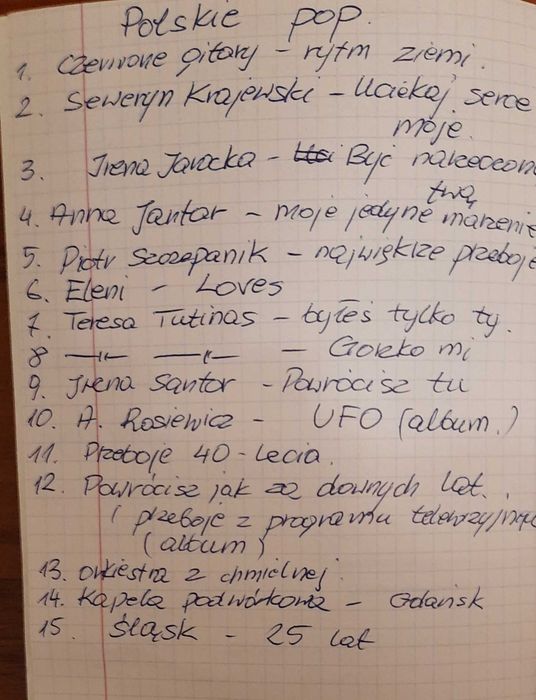 Polskie pop.
1. Czerwone gitary - rytm ziemi.
2. Seweryn Krajewski - Uciekaj serce
moje.
3. Irena Jarocka - Być narzeczoną
twą
4. Anna Jantar - moje jedyne marzenie
5. Piotr Szczepanik - największe przeboje
6. Eleni - Loves
7. Teresa Tutinas - byłeś tylko ty.
8 —ıı— —ıı— - Gorzko mi
9. Irena Santor - Powrócisz tu
10. A. Rosiewicz - UFO (album.)
11. Przeboje 40-lecia.
12. Powrócisz jak za dawnych lat.
( przeboje z programu
(album)
13. orkiestra z chmielnej.
14. Kapela podwórkowa - Gdańsk
15. Śląsk - 25 lat